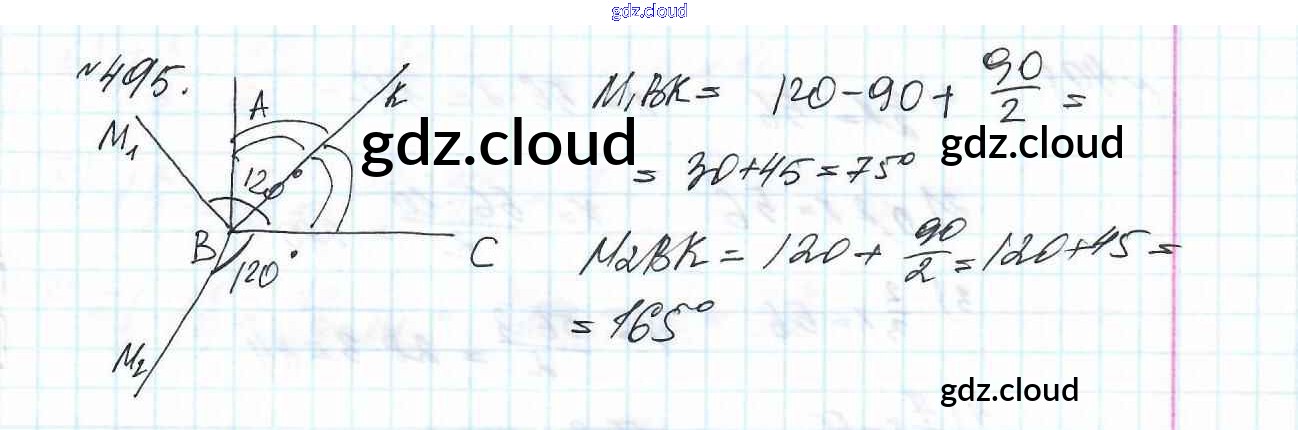 gdz.cloud
№495.
A
K
M₁
120°
B
C
120°
M₂
M₁BK = 120 - 90 + 90/2 =
= 30 + 45 = 75°
M₂BK = 120 + 90/2 = 120 + 45 =
= 165°
gdz.cloud
gdz.cloud
gdz.cloud